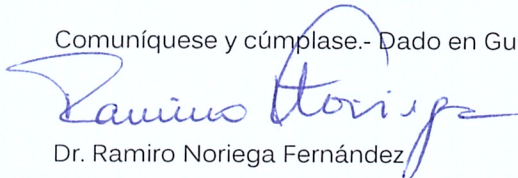 Comuníquese y cúmplase.- Dado en Gu
Ramiro Noriega
Dr. Ramiro Noriega Fernández